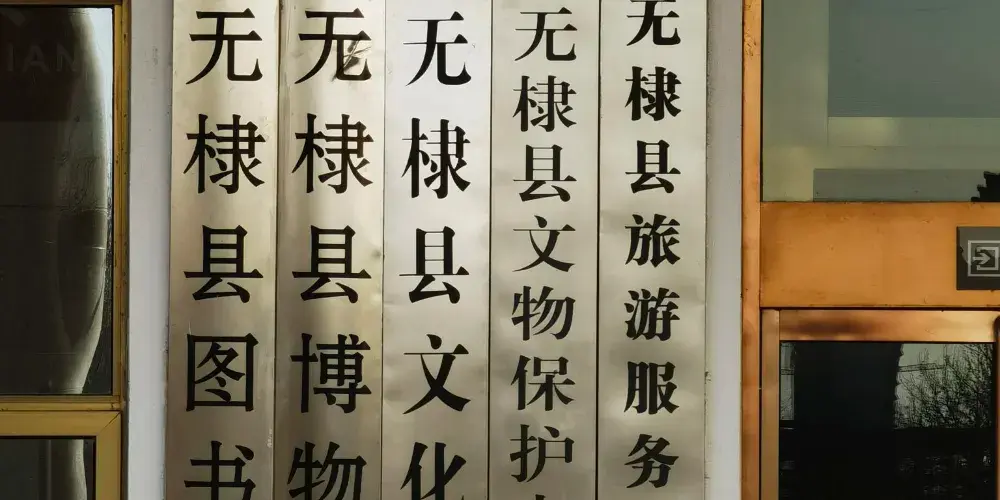 无棣县图书
无棣县博物
无棣县文化
无棣县文物保护
无棣县旅游服务